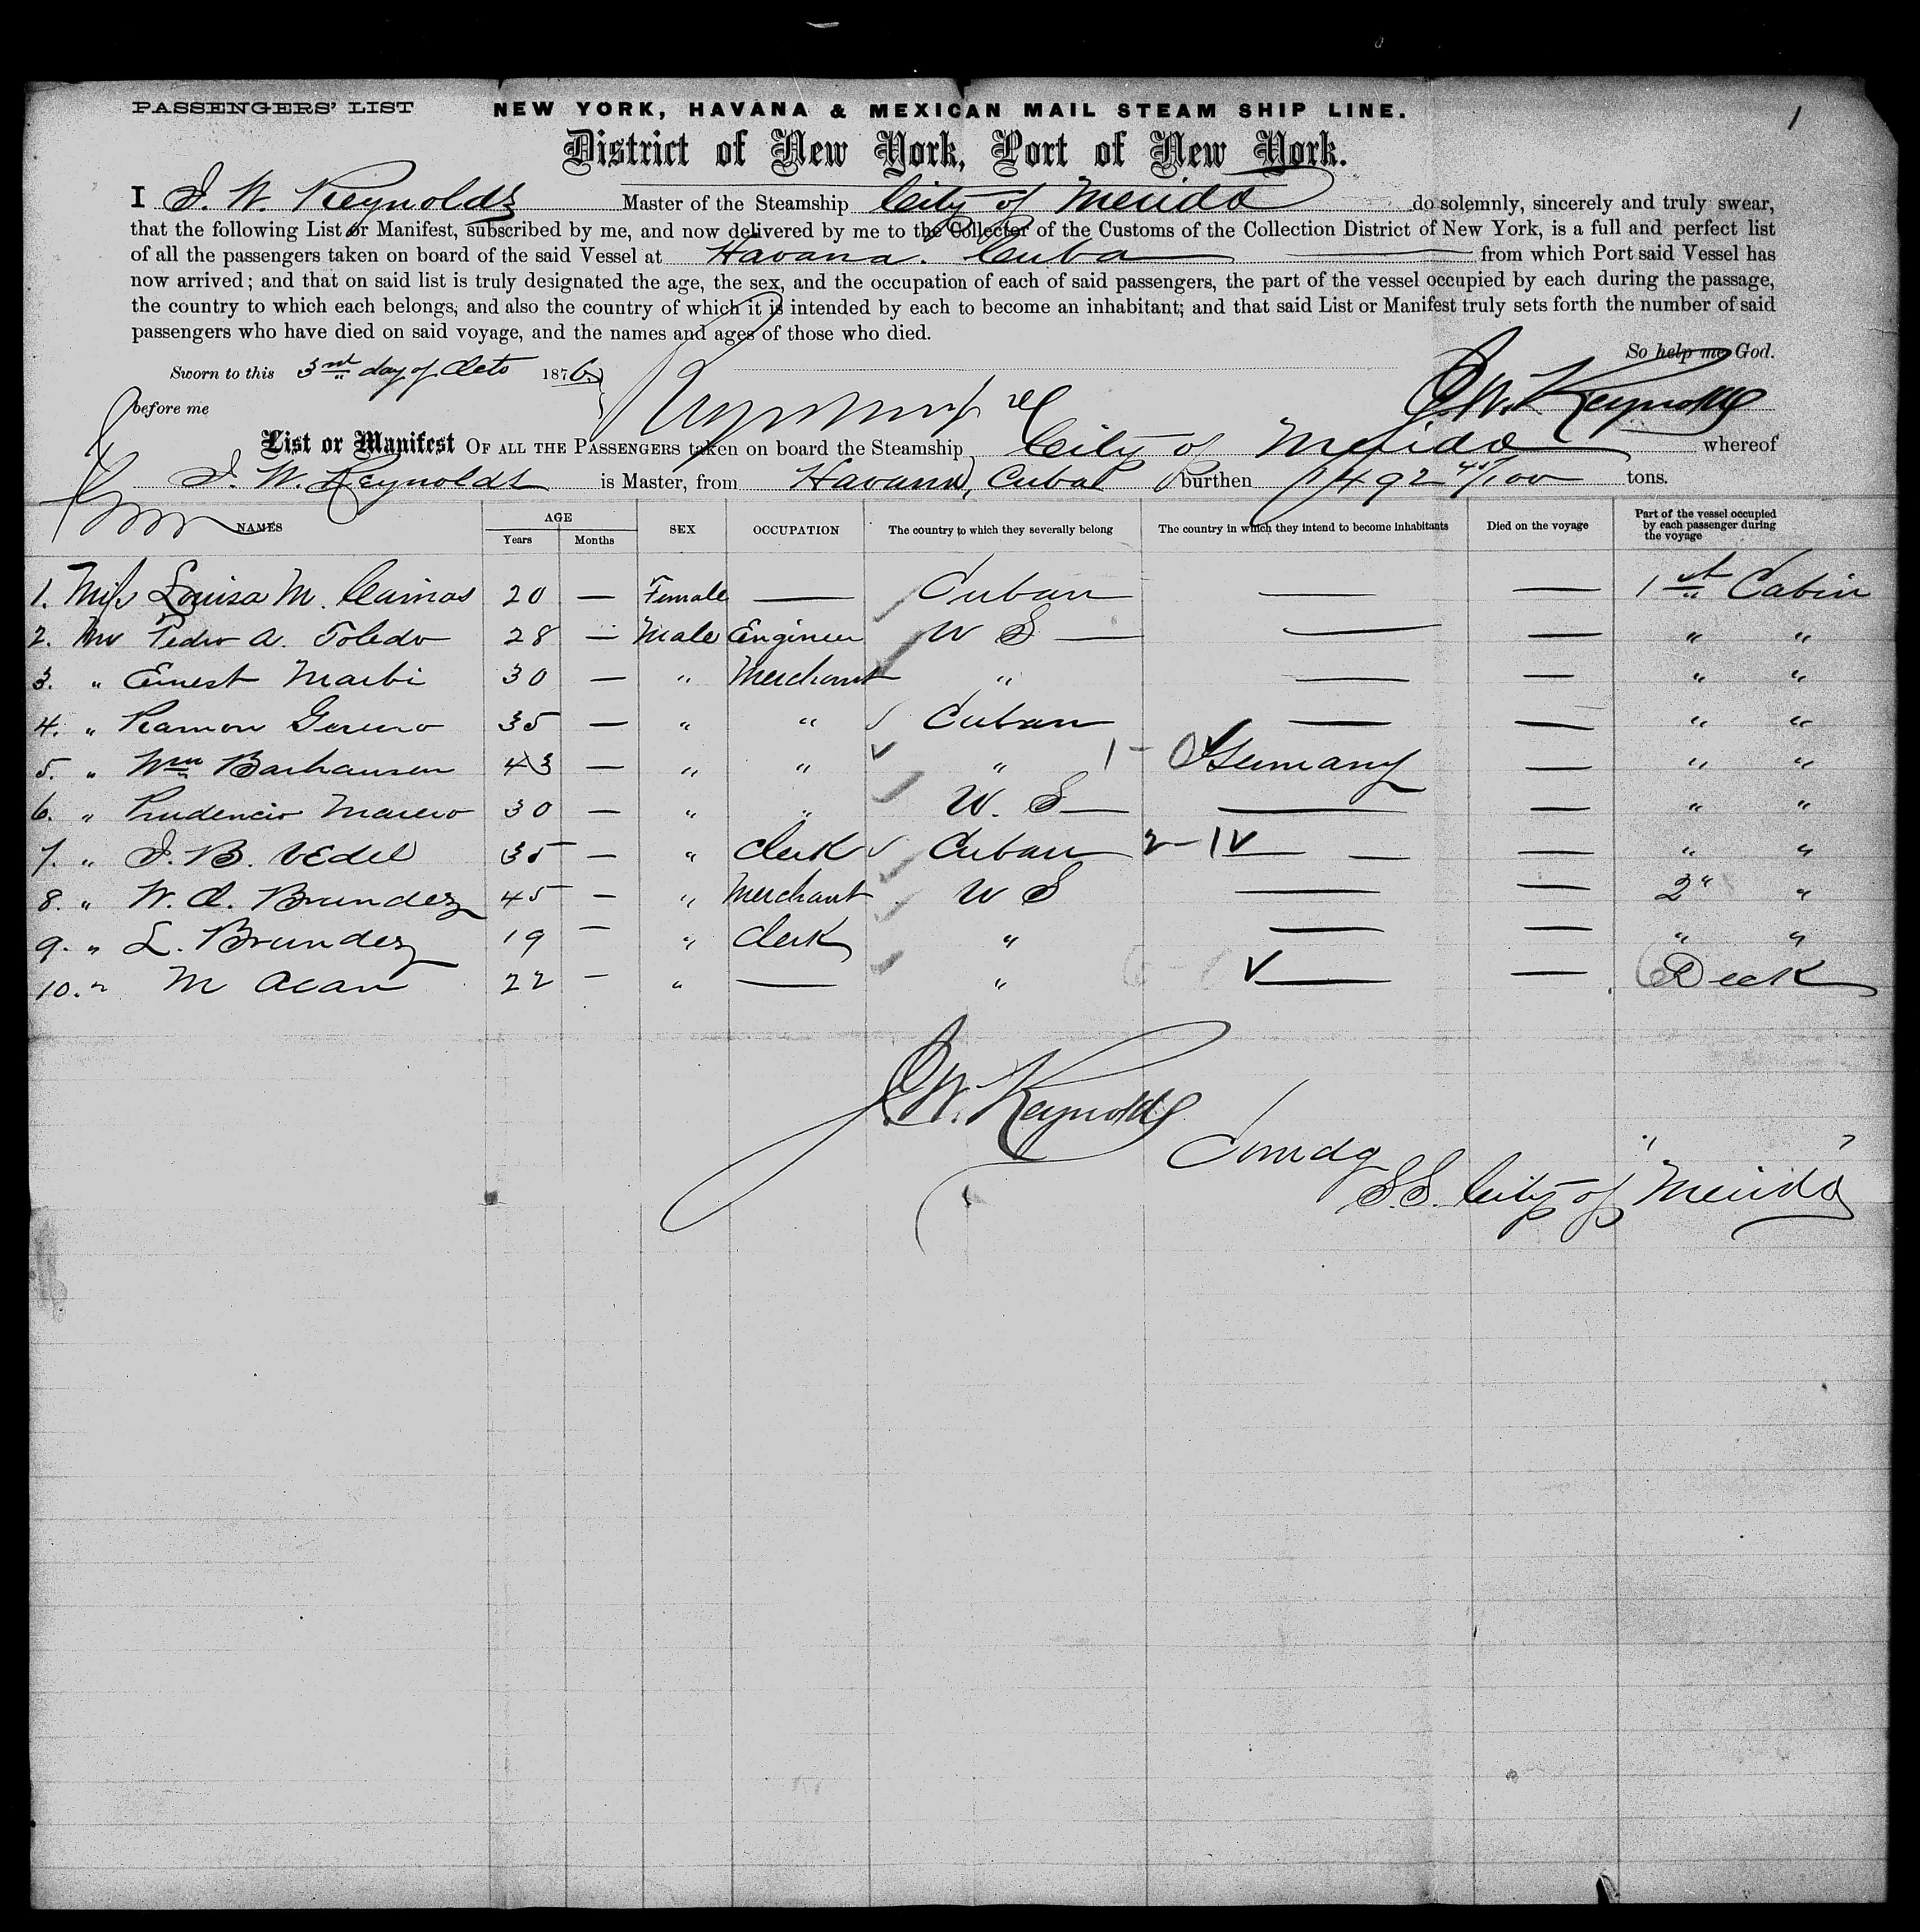 1
PASSENGERS' LIST NEW YORK, HAVANA & MEXICAN MAIL STEAM SHIP LINE.
District of New York, Port of New York.
I J. W. Reynolds Master of the Steamship City of Merida do solemnly, sincerely and truly swear,
that the following List or Manifest, subscribed by me, and now delivered by me to the Collector of the Customs of the Collection District of New York, is a full and perfect list
of all the passengers taken on board of the said Vessel at Havana. Cuba from which Port said Vessel has
now arrived; and that on said list is truly designated the age, the sex, and the occupation of each of said passengers, the part of the vessel occupied by each during the passage,
the country to which each belongs, and also the country of which it is intended by each to become an inhabitant; and that said List or Manifest truly sets forth the number of said
passengers who have died on said voyage, and the names and ages of those who died.
So help me God.
Sworn to this 3rd day of Octo 1876
before me J. W. Reynolds
List or Manifest OF ALL THE PASSENGERS taken on board the Steamship City of Merida whereof
J. W. Reynolds is Master, from Havana, Cuba burthen 1492 45/100 tons.
NAMES AGE Years Months SEX OCCUPATION The country to which they severally belong The country in which they intend to become inhabitants Died on the voyage Part of the vessel occupied by each passenger during the voyage
1. Miss Louisa M. Camas 20 — Female — Cuban — — 1st Cabin
2. Mr Pedro A. Toledo 28 — Male Engineer U S — — — " "
3. " Ernest Marbi 30 — " Merchant " — — " "
4. " Ramon 35 — " " Cuban — — " "
5. " Wm Barhausen 43 — " " " 1- Germany — " "
6. " Prudencio 30 — " " U. S — — — " "
7. " J. B. Vedel 35 — " Clerk Cuban 2-1 — — — " "
8. " W. A. Brundez 45 — " Merchant U S — — 2" "
9. " L. Brundez 19 — " Clerk " — — " "
10. " M Acan 22 — " — " — — Deck
J. W. Reynolds
Comdg
S.S. "City of Merida"